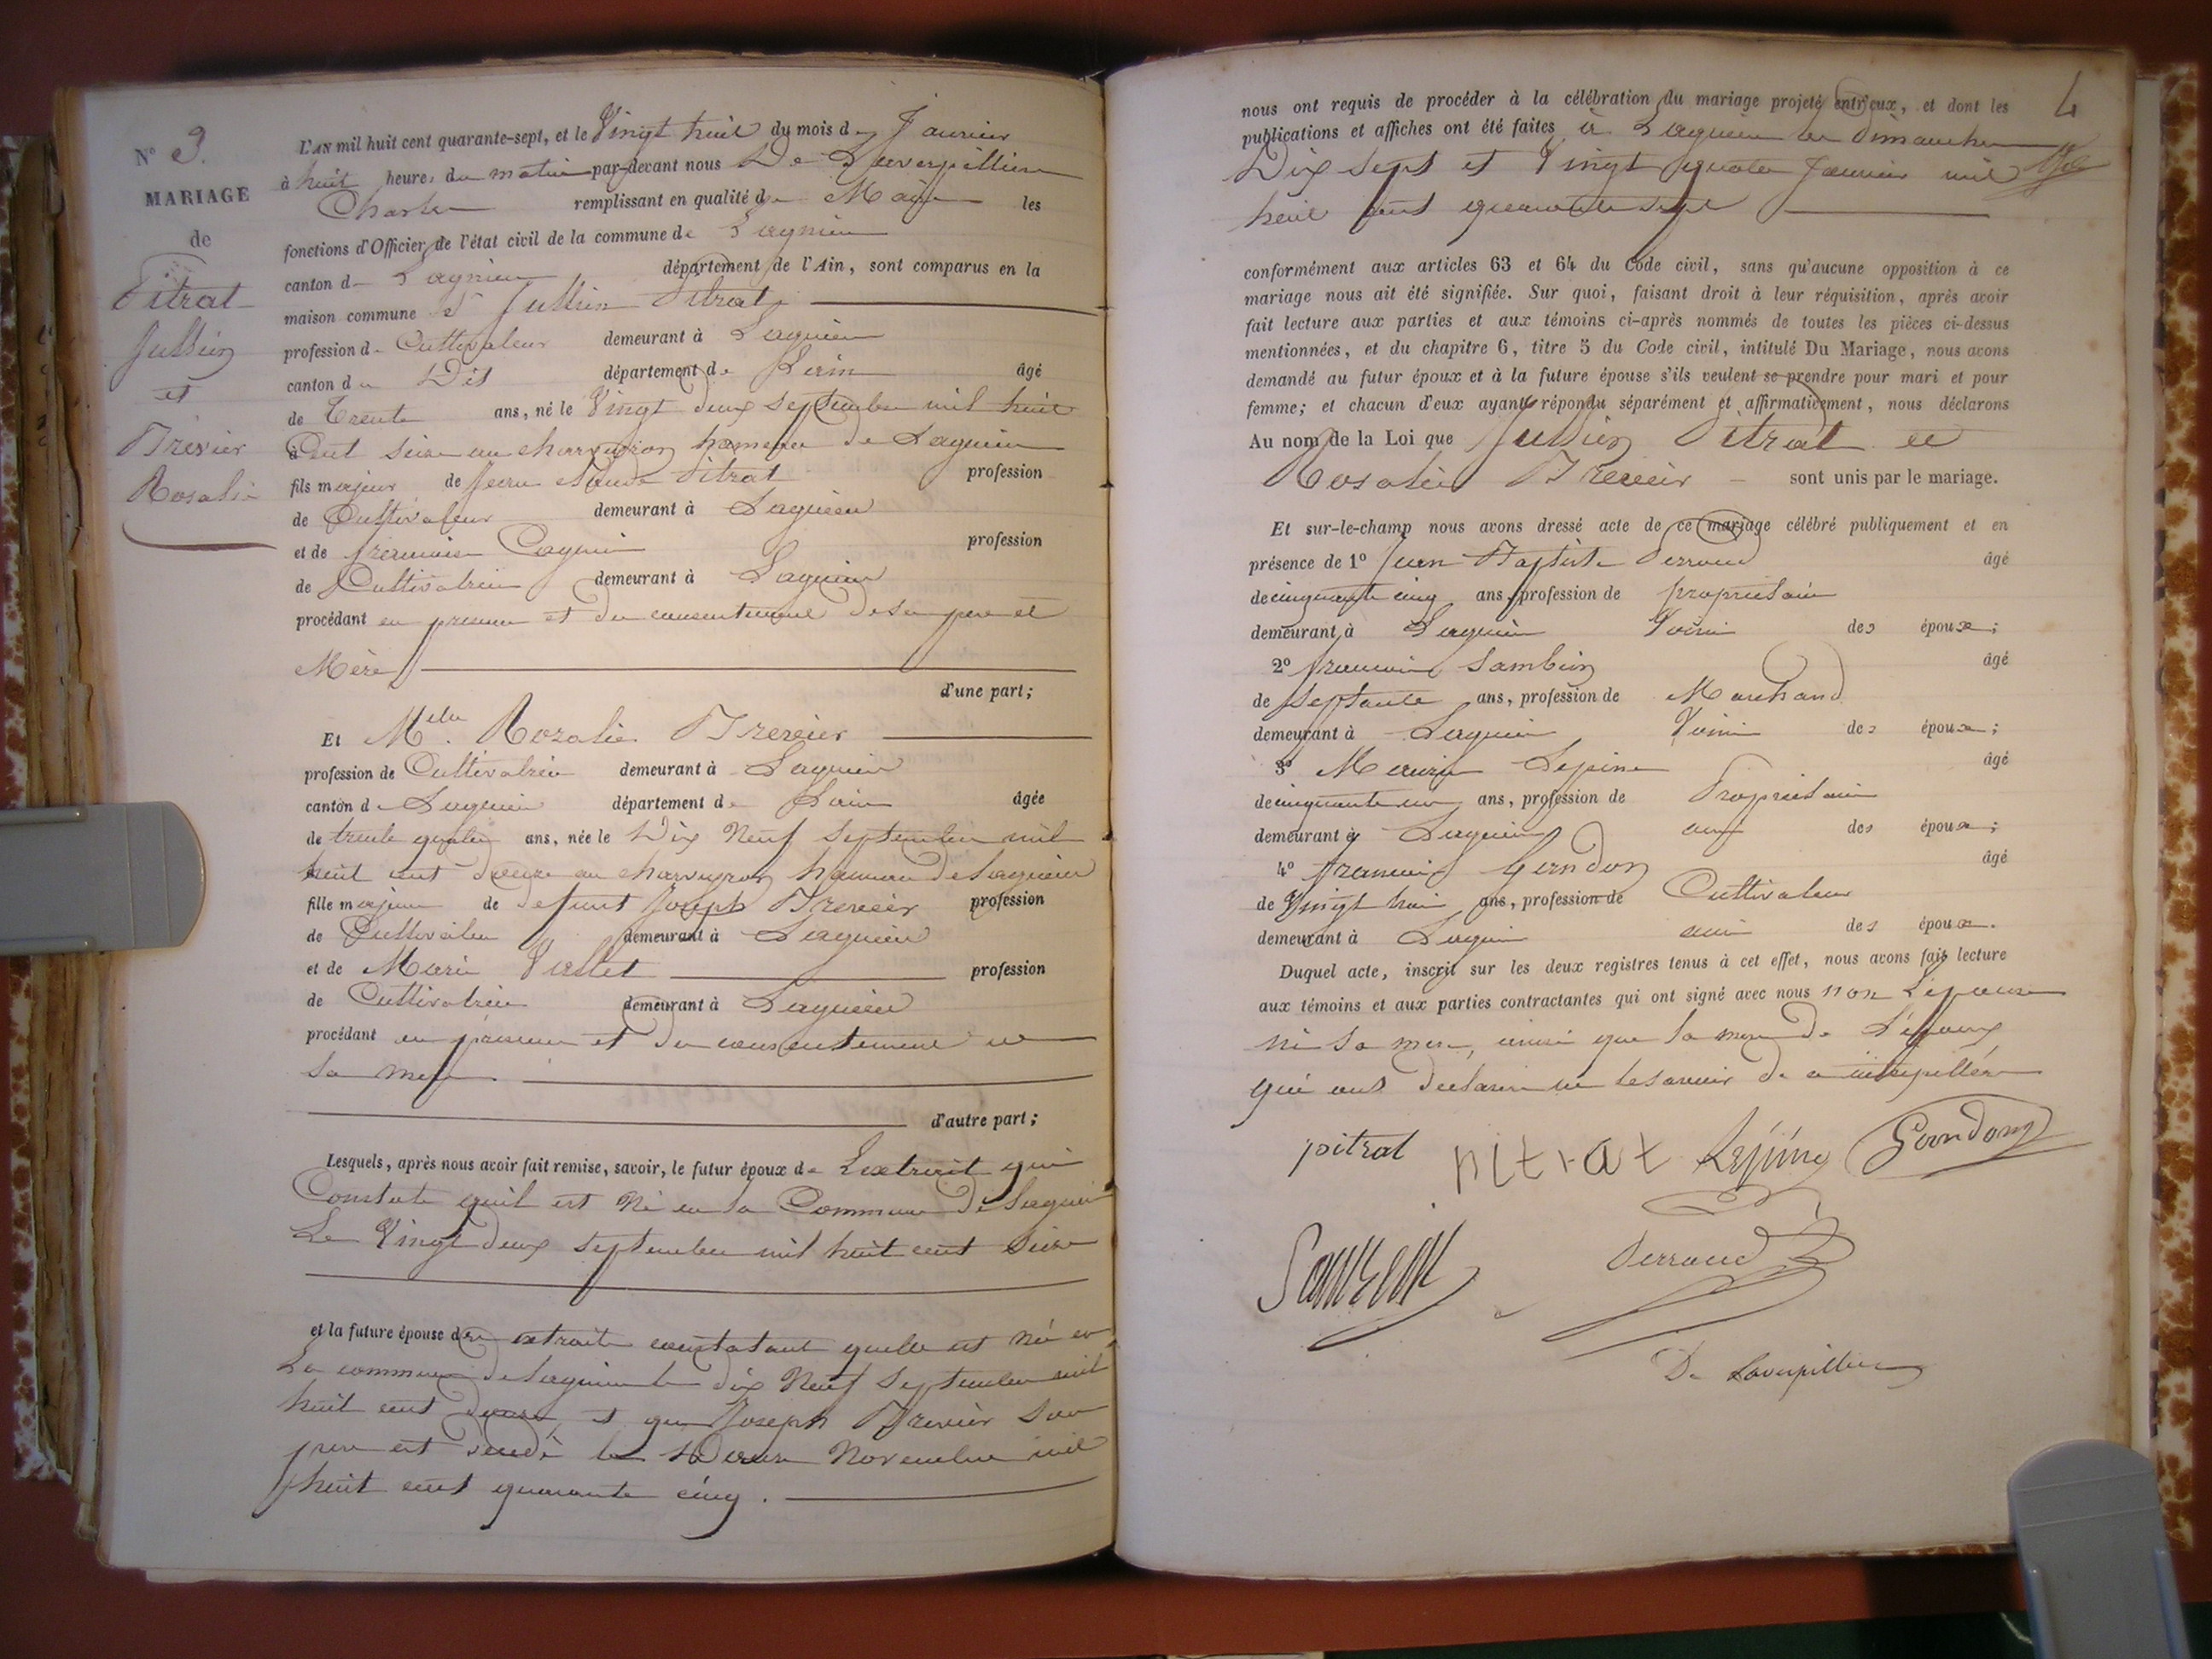 N° 3.
MARIAGE
de
Pitrat
Jullien
et
Brevier
Rosalie
L'AN mil huit cent quarante-sept, et le Vingt huit du mois de Janvier
à huit heures du matin par-devant nous De Laverpilliere
Charles remplissant en qualité de Maire les
fonctions d'Officier de l'état civil de la commune de Lagnieu
canton de Lagnieu département de l'Ain, sont comparus en la
maison commune Sr Jullien Pitrat,
profession de Cultivateur demeurant à Lagnieu
canton du Dit département de Lain âgé
de Trente ans, né le Vingt deux septembre mil huit
Cent seize au charveyron hameau de Lagnieu
fils majeur de Jean Claude Pitrat profession
de Cultivateur demeurant à Lagnieu
et de francoise profession
de Cultivatrice demeurant à Lagnieu
procédant en presence et du consentement de son pere et
Mère
d'une part;
Et Melle Rozalie Brevier
profession de Cultivatrice demeurant à Lagnieu
canton de Lagnieu département de Lain âgée
de trente quatre ans, née le Dix Neuf Septembre mil
huit cent douze au charveyron hameau de Lagnieu
fille majeure de defunt Joseph Brevier profession
de Cultivateur demeurant à Lagnieu
et de Marie Vallet profession
de Cultivatrice demeurant à Lagnieu
procédant en présence et du consentement de
sa mere.
d'autre part;
Lesquels, après nous avoir fait remise, savoir, le futur époux de Lextrait qui
Constate quil est Né en la Commune de Lagnieu
Le Vingt deux septembre mil huit cent seize
et la future épouse de extraits constatant quelle est née en
La commune de Lagnieu le dix Neuf Septembre mil
huit cent douze, et que Joseph Brevier son
pere est decedé le Novembre mil
huit cent quarante cinq.
4
nous ont requis de procéder à la célébration du mariage projeté entr'eux, et dont les
publications et affiches ont été faites à Lagnieu les dimanches
Dix sept et Vingt quatre Janvier mil
huit cent quarante sept
conformément aux articles 63 et 64 du Code civil, sans qu'aucune opposition à ce
mariage nous ait été signifiée. Sur quoi, faisant droit à leur réquisition, après avoir
fait lecture aux parties et aux témoins ci-après nommés de toutes les pièces ci-dessus
mentionnées, et du chapitre 6, titre 5 du Code civil, intitulé Du Mariage, nous avons
demandé au futur époux et à la future épouse s'ils veulent se prendre pour mari et pour
femme; et chacun d'eux ayant répondu séparément et affirmativement, nous déclarons
Au nom de la Loi que Jullien Pitrat et
Rosalie Brevier sont unis par le mariage.
Et sur-le-champ nous avons dressé acte de ce mariage célébré publiquement et en
présence de 1° Jean Baptiste Perroud âgé
de cinquante cinq ans, profession de propriétaire
demeurant à Lagnieu Voisin des époux;
2° francois Sambin âgé
de septante ans, profession de Marchand
demeurant à Lagnieu Voisin des époux;
3° Maurice Lepine âgé
de cinquante un ans, profession de Propriétaire
demeurant à Lagnieu ami des époux;
4° francois Gerndon âgé
de Vingt huit ans, profession de Cultivateur
demeurant à Lagnieu ami des époux.
Duquel acte, inscrit sur les deux registres tenus à cet effet, nous avons fait lecture
aux témoins et aux parties contractantes qui ont signé avec nous non Lepouse
ni sa mere, ainsi que la mere de L'époux
qui ont declarer ne le savoir de ce interpellés
pitrat pitrat Lépine
Perroud
De Laverpilliere